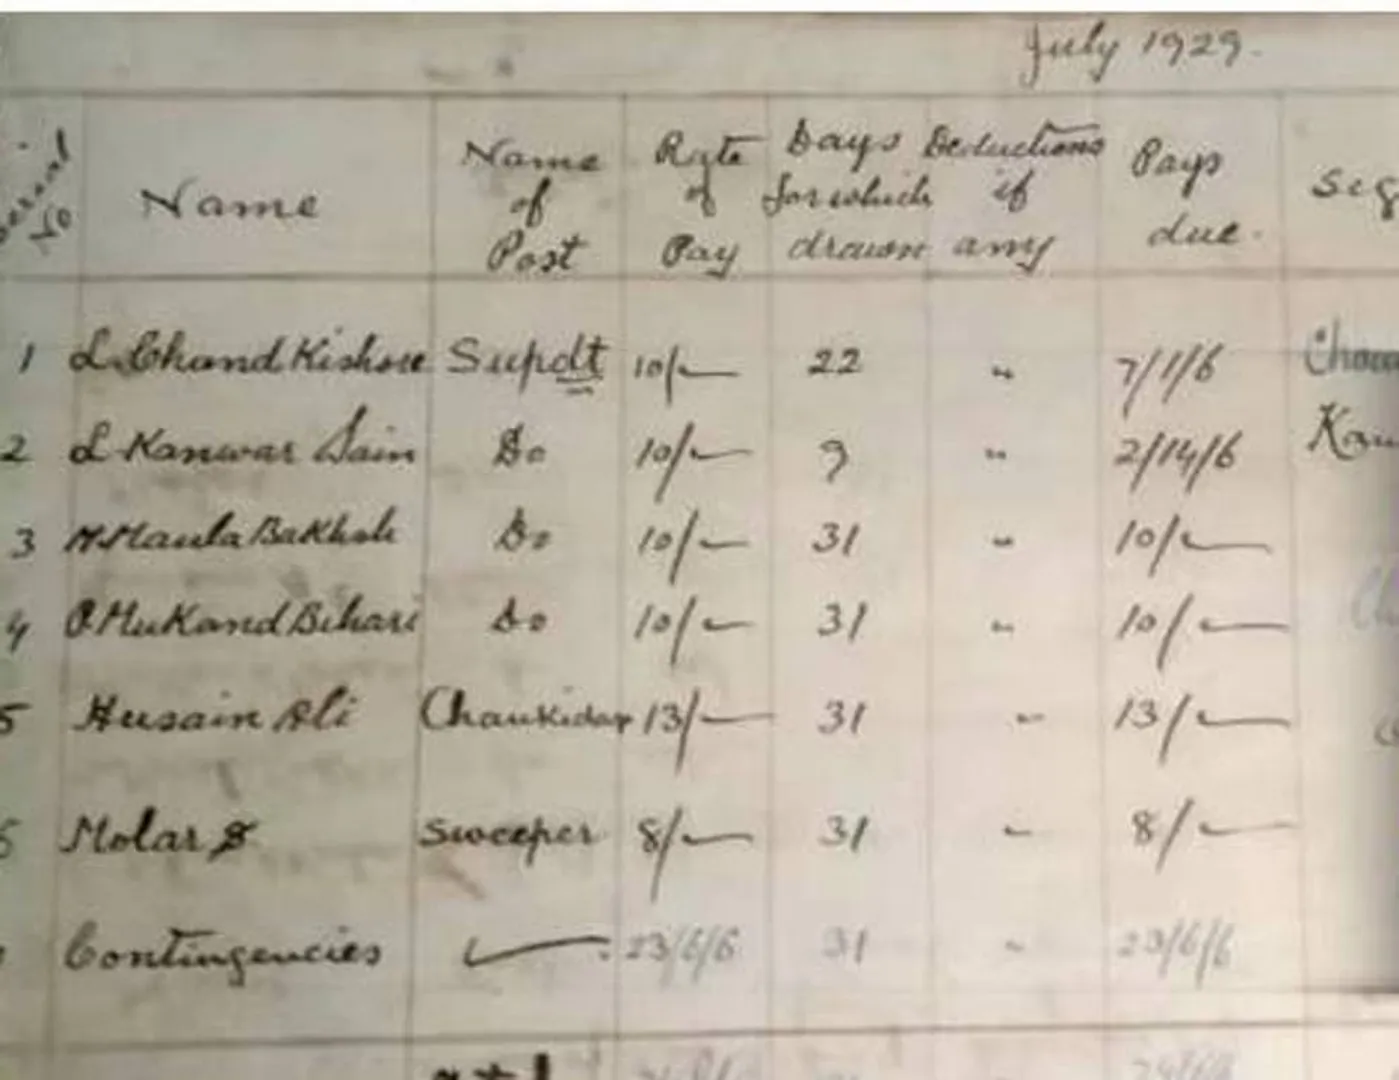 July 1929.
Serial No Name Name of Post Rate of Pay Days for which drawn Deductions if any Pays due.
1 L. Chand Kishore Supdt 10/- 22 " 7/1/6
2 L Kanwar Sain Do 10/- 9 " 2/14/6 Kan
3 M. Maula Bakhsh Do 10/- 31 " 10/-
4 P Mukand Bihari Do 10/- 31 " 10/-
5 Husain Ali Chaukidar 13/- 31 " 13/-
6 Molar Sweeper 8/- 31 " 8/-
Contingencies 23/6/6 31 " 23/6/6